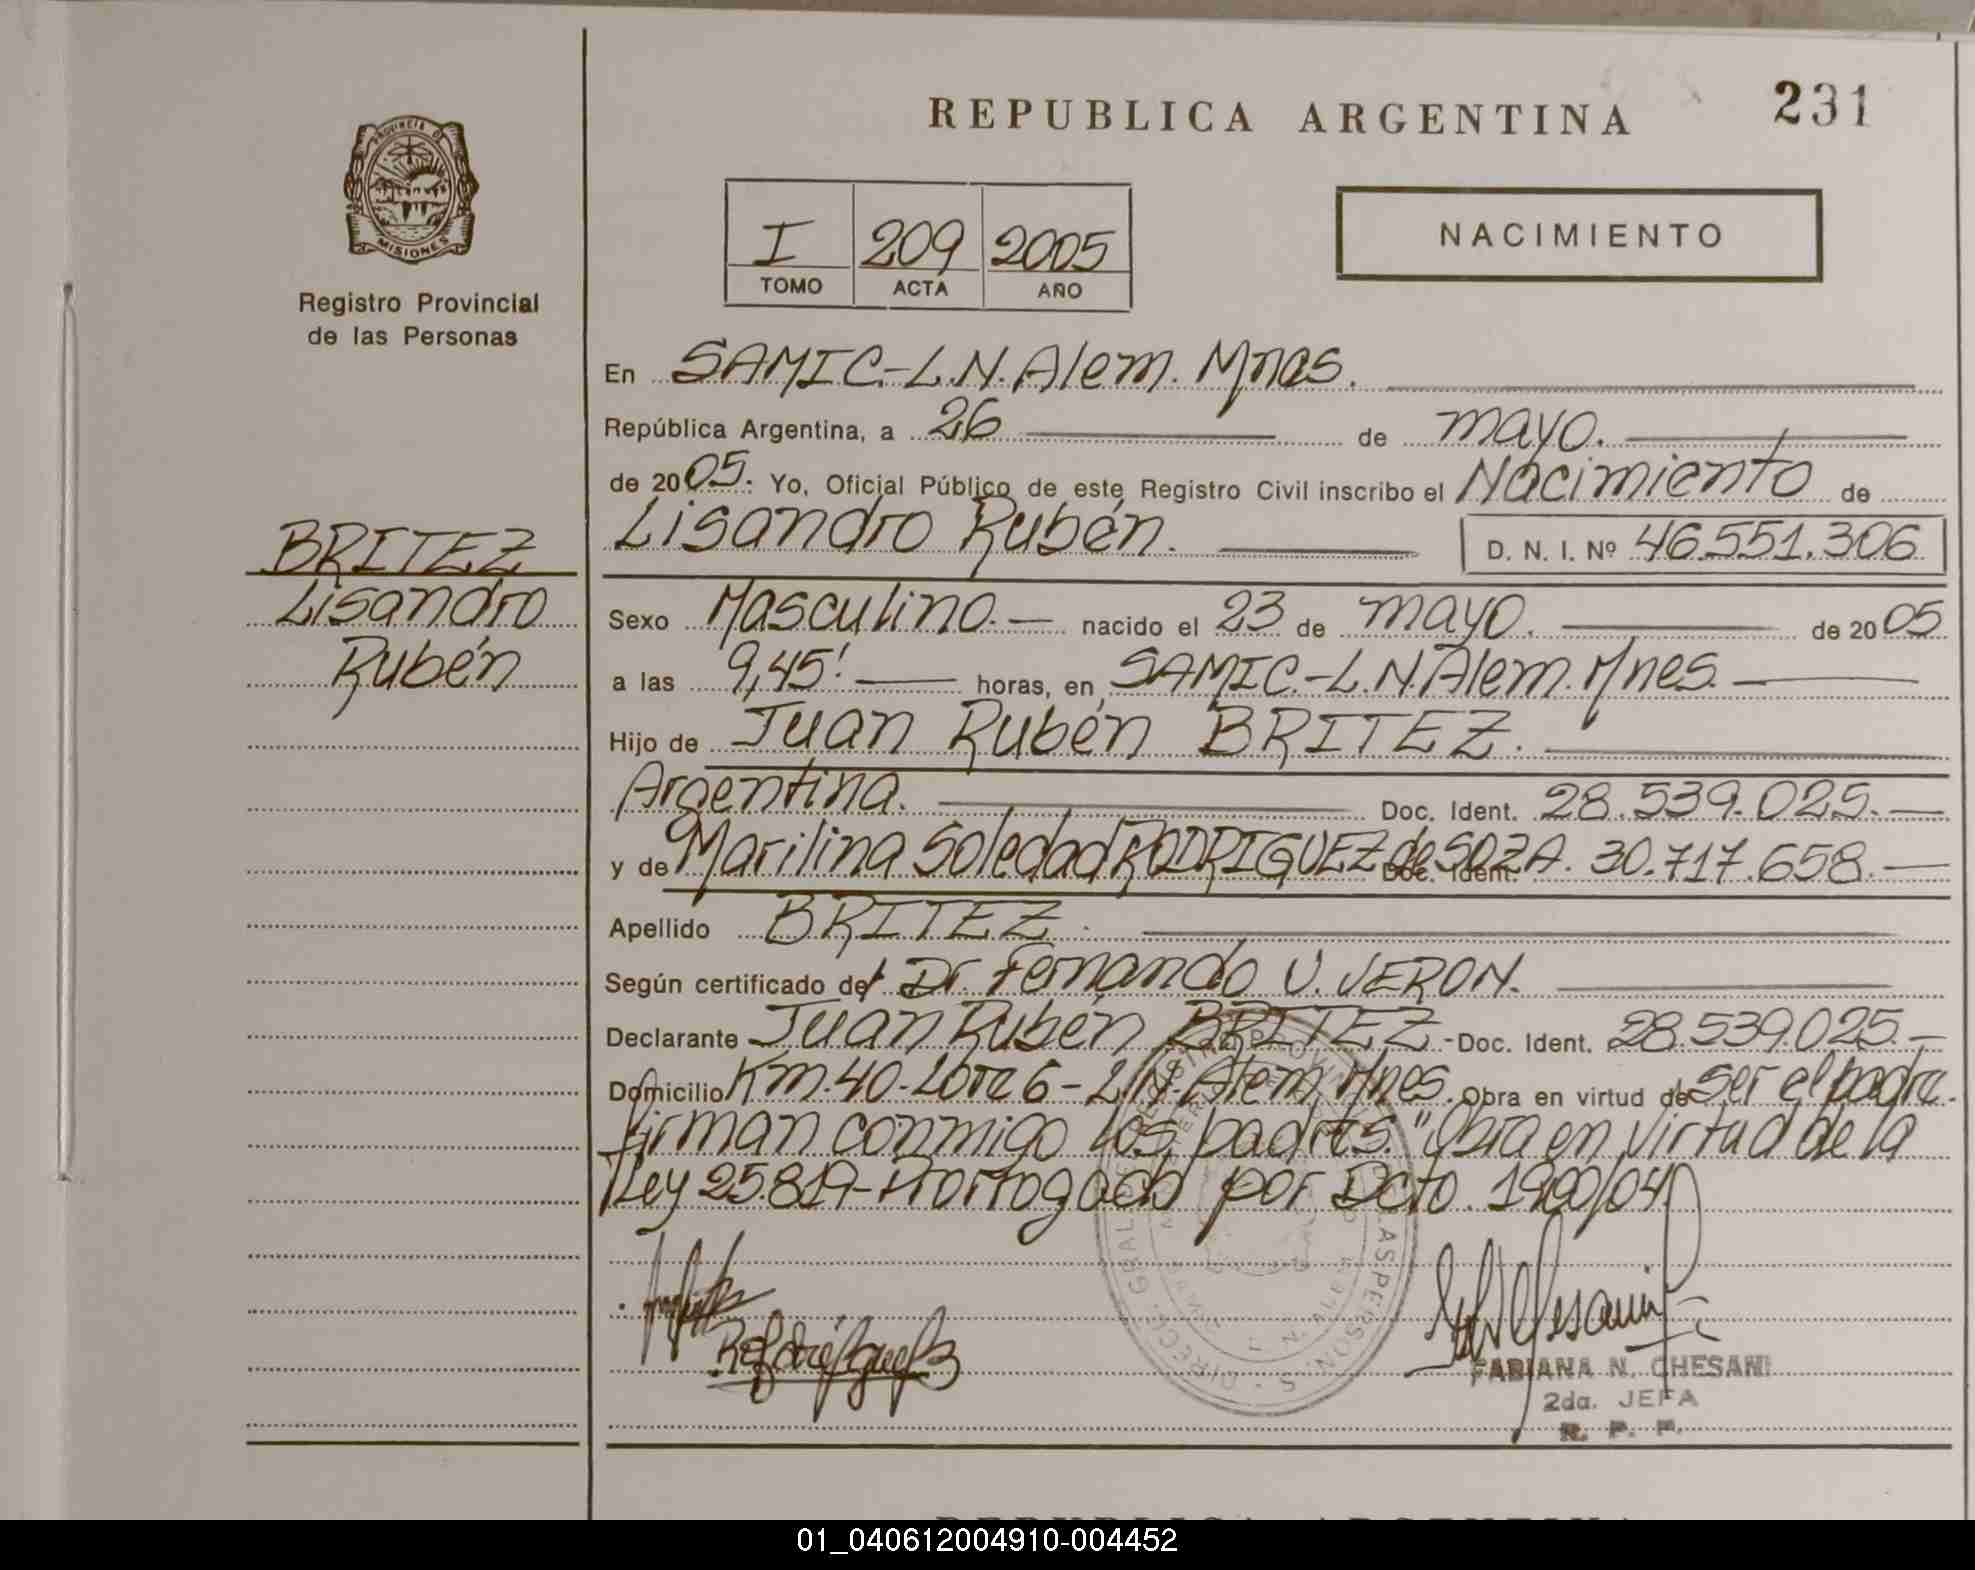 REPUBLICA ARGENTINA
231
PROVINCIA DE
MISIONES
Registro Provincial
de las Personas
I 209 2005
TOMO ACTA AÑO
NACIMIENTO
En SAMIC.-L.N.Alem. Mnes.
República Argentina, a 26 de mayo.
de 2005. Yo, Oficial Público de este Registro Civil inscribo el Nacimiento de
Lisandro Rubén. D. N. I. Nº 46.551.306
BRITEZ
Lisandro
Rubén
Sexo Masculino.- nacido el 23 de mayo. de 2005
a las 9,45' horas, en SAMIC.-L.N.Alem.Mnes.
Hijo de Juan Rubén BRITEZ.
Argentina. Doc. Ident. 28.539.025.-
y de Marilina Soledad RODRIGUEZ de SOZA. Doc. Ident. 30.717.658.-
Apellido BRITEZ.
Según certificado del Dr. Fernando U. VERON.
Declarante Juan Rubén BRITEZ - Doc. Ident. 28.539.025.-
Domicilio Km.40-Lote 6-L.N.Alem.Mnes. Obra en virtud de ser el padre.
firman conmigo los padres. "Obra en virtud de la
Ley 25.819-Prorrogada por Dcto. 1900/04"
FABIANA N. CHESANI
2da. JEFA
R. P. P.
01_040612004910-004452